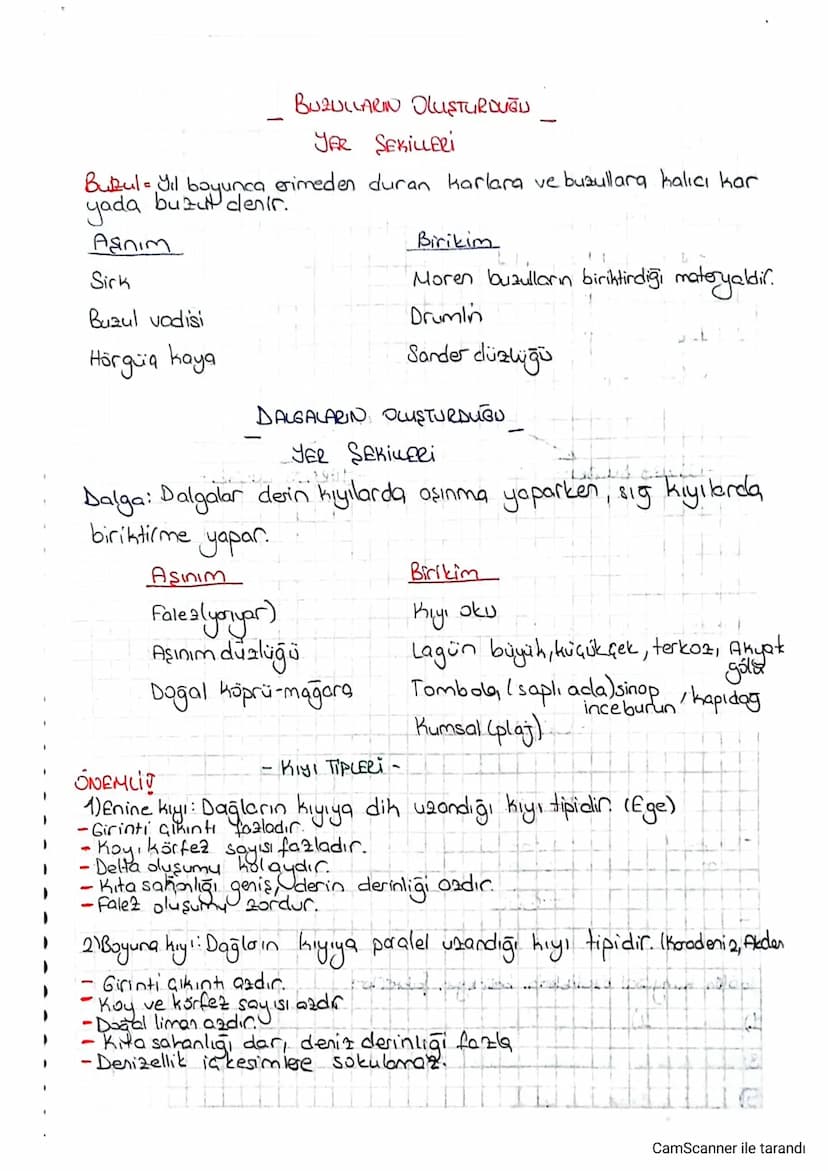 BUZULLARIN OLUŞTURDUĞU
YER ŞEKİLLERİ
Buzul = Yıl boyunca erimeden duran karlara ve buzullara kalıcı kar
yada buzul denir.
Aşınım
Birikim
Sirk
Moren buzulların biriktirdiği materyaldir.
Buzul vadisi
Drumlin
Hörgüç kaya
Sander düzlüğü
DALGALARIN OLUŞTURDUĞU
YER ŞEKİLLERİ
Dalga: Dalgalar derin kıyılarda aşınma yaparken, sığ kıyılarda
biriktirme yapar.
Aşınım
Birikim
Falez (yarıyar)
Kıyı oku
Aşınım düzlüğü
Lagün büyük, küçükçek, terkoz, Akyat
gölü
Doğal köprü-mağara
Tombola (saplı ada) sinop
inceburun / kapıdağ
Kumsal (plaj)
- KIYI TİPLERİ -
ÖNEMLİ!
1) Enine kıyı: Dağların kıyıya dik uzandığı kıyı tipidir. (Ege)
- Girinti çıkıntı fazladır.
- Koy, körfez sayısı fazladır.
- Delta oluşumu kolaydır.
- Kıta sahanlığı geniş, derin derinliği azdır.
- Falez oluşumu zordur.
2) Boyuna kıyı: Dağların kıyıya paralel uzandığı kıyı tipidir. (Karadeniz, Akden
- Girinti çıkıntı azdır.
- Koy ve körfez sayısı azdır
- Doğal liman azdır.
- Kıta sahanlığı dar, deniz derinliği fazla
- Denizellik iç kesimlere sokulamaz.
CamScanner ile tarandı